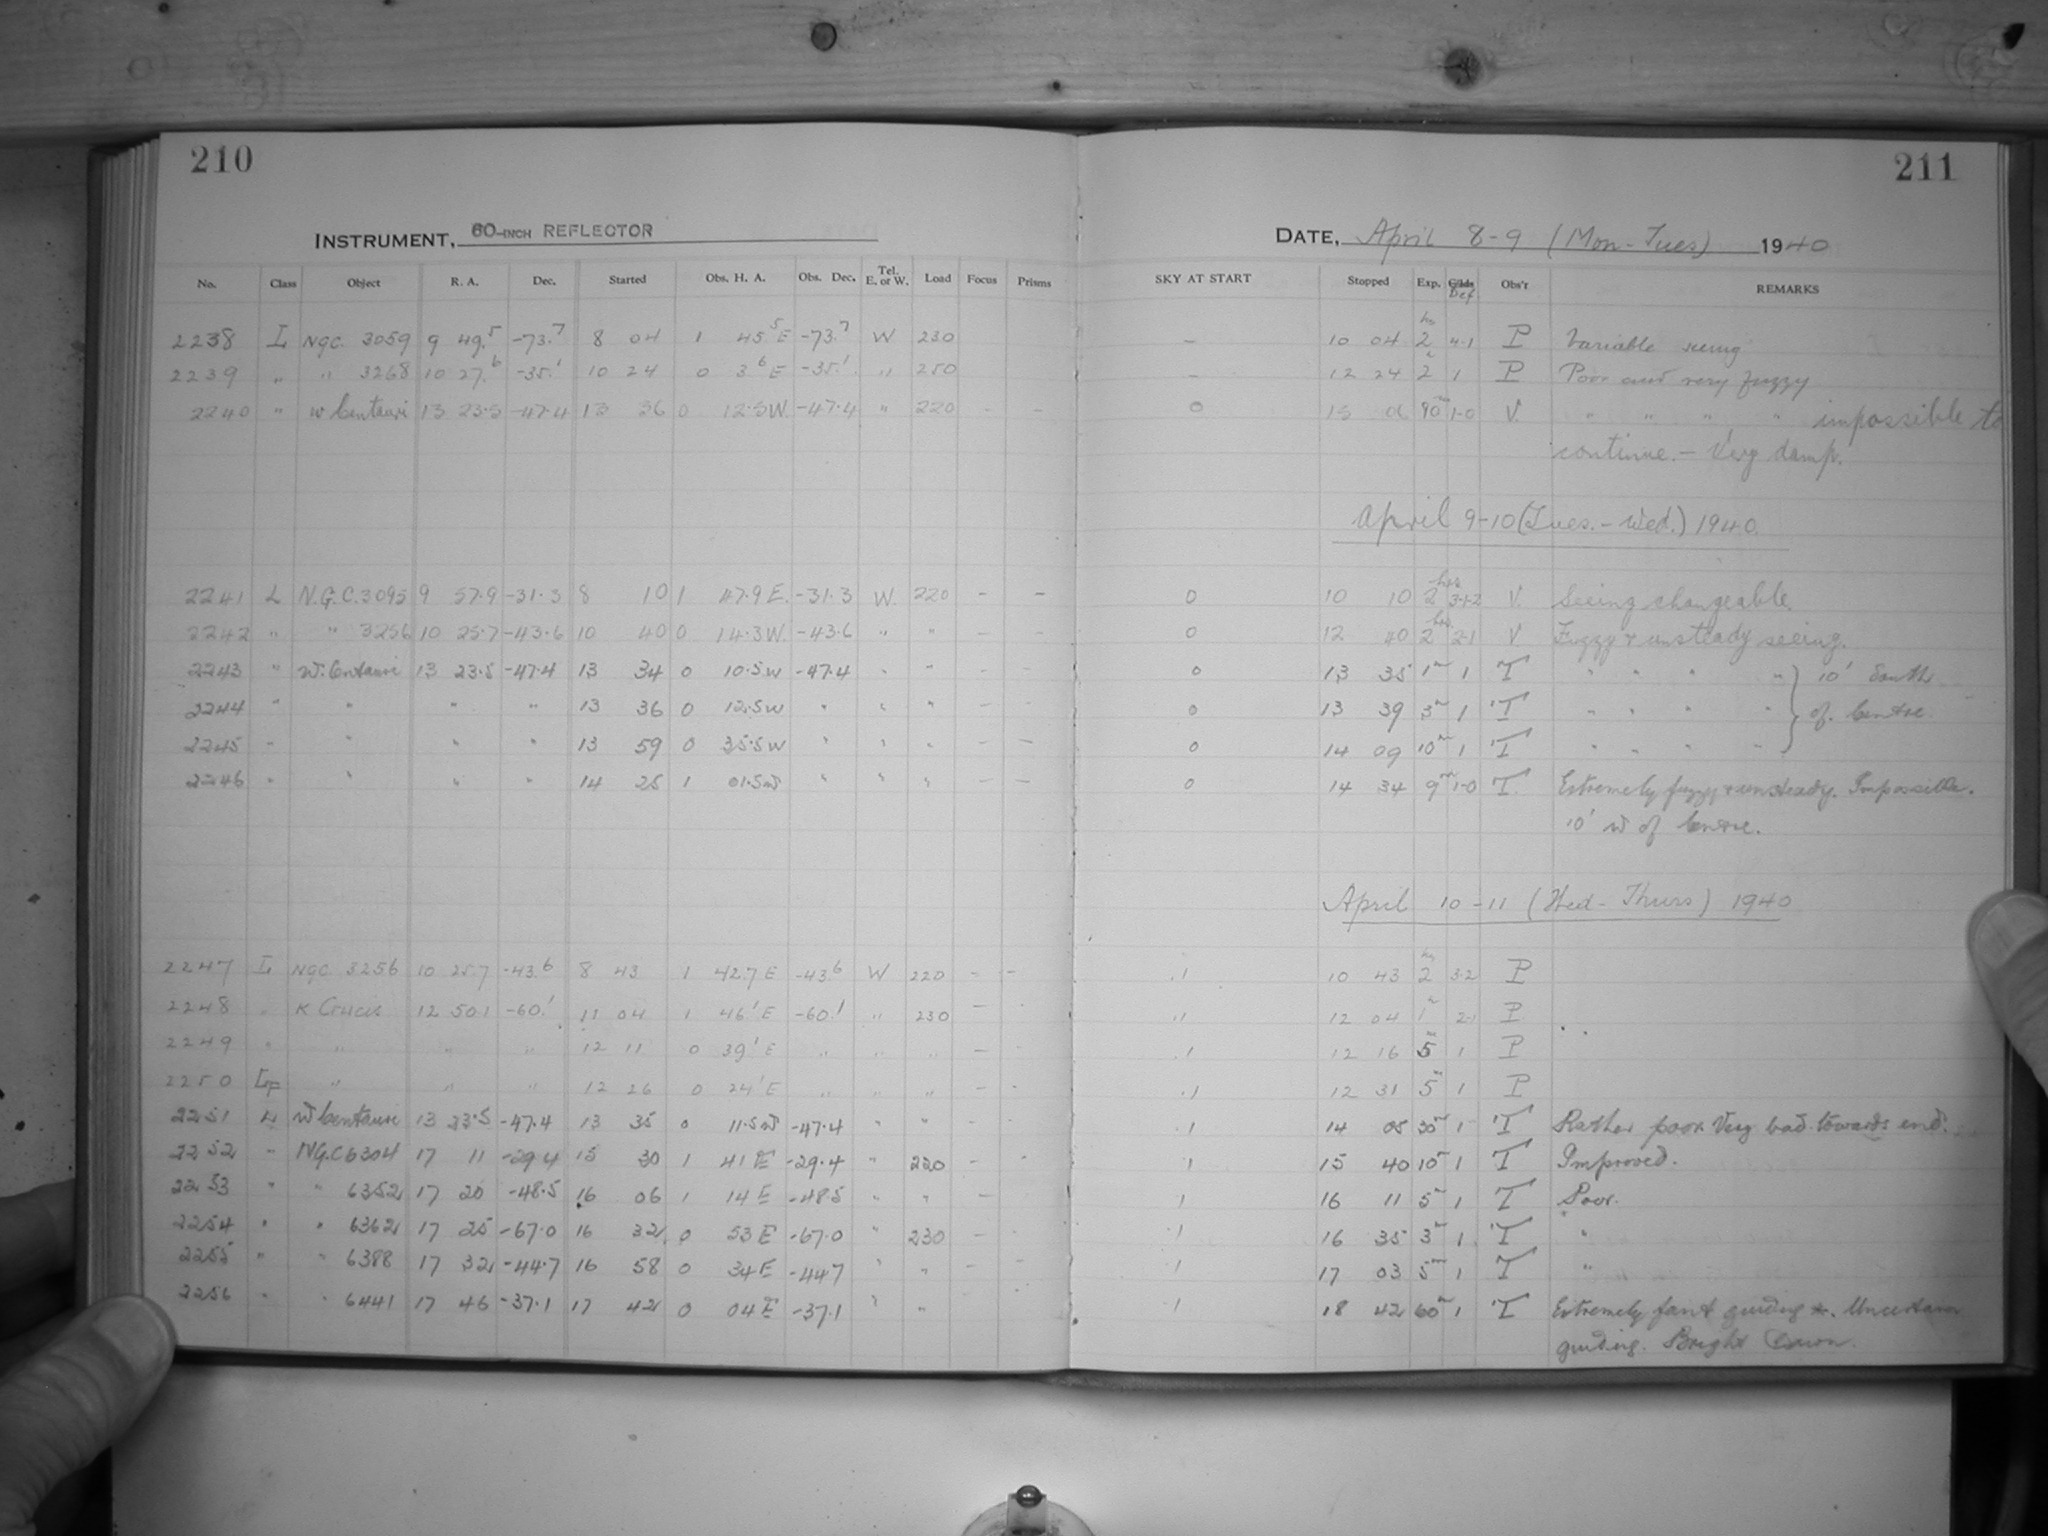 210
211
INSTRUMENT, 60-INCH REFLECTOR
DATE, April 8-9 (Mon-Tues) 1940
No. Class Object R. A. Dec. Started Obs. H. A. Obs. Dec. Tel. E. or W. Load Focus Prisms SKY AT START Stopped Exp. Def Obs'r REMARKS
2238 L NGC. 3059 9 49.5 -73.7 8 04 1 45.5 E -73.7 W 230 - 10 04 2 hrs 4-1 P Variable seeing
2239 " " 3268 10 27.6 -35.1 10 24 0 3.6 E -35.1 " 250 - 12 24 2 1 P Poor and very fuzzy
2240 " w Centauri 13 23.5 -47.4 13 36 0 12.5 W. -47.4 " 220 - - 0 15 06 90m 1-0 V. " " " " impossible to
continue. - Very damp.
April 9-10 (Tues. - Wed.) 1940.
2241 L N.G.C. 3095 9 57.9 -31.3 8 10 1 47.9 E. -31.3 W. 220 - - 0 10 10 2 hrs 3-1-2 V. Seeing changeable.
2242 " " 3256 10 25.7 -43.6 10 40 0 14.3 W. -43.6 " " 0 12 40 2 hrs. 2-1 V Fuzzy & unsteady seeing.
2243 " w. Centauri 13 23.5 -47.4 13 34 0 10.5 W -47.4 " " - - 0 13 35 1m 1 T " " " " } 10' South
2244 " " " " 13 36 0 12.5 W " " " - - 0 13 39 3m 1 T " " " " } of Centre.
2245 " " " " 13 59 0 35.5 W " " " - - 0 14 09 10m 1 T " " " " }
2246 " " " " 14 25 1 01.5 W " " " - - 0 14 34 9m 1-0 T. Extremely fuzzy & unsteady. Impossible.
10' W of Centre.
April 10-11 (Wed-Thurs) 1940
2247 L NGC 3256 10 25.7 -43.6 8 43 1 42.7 E -43.6 W 220 - - .1 10 43 2 hrs 3-2 P
2248 " K Crucis 12 50.1 -60.1 11 04 1 46.1 E -60.1 " 230 - .1 12 04 1 2-1 P
2249 " " " " 12 11 0 39.1 E " " " - .1 12 16 5m 1 P
2250 LF " " " 12 26 0 24.1 E " " " - - .1 12 31 5m 1 P
2251 L w Centauri 13 23.5 -47.4 13 35 0 11.5 W -47.4 " " - .1 14 05 30m 1 T Rather poor. Very bad towards end.
2252 " NGC 6304 17 11 -29.4 15 30 1 41 E -29.4 " 220 - .1 15 40 10m 1 T Improved.
2253 " " 6352 17 20 -48.5 16 06 1 14 E -48.5 " " - .1 16 11 5m 1 T Poor.
2254 " " 6362 17 25 -67.0 16 32 0 53 E -67.0 " 230 - - .1 16 35 3m 1 T "
2255 " " 6388 17 32 -44.7 16 58 0 34 E -44.7 " " - - .1 17 03 5m 1 T "
2256 " " 6441 17 46 -37.1 17 42 0 04 E -37.1 " " .1 18 42 60m 1 T Extremely faint guiding *. Uncertain
guiding. Bright Dawn.